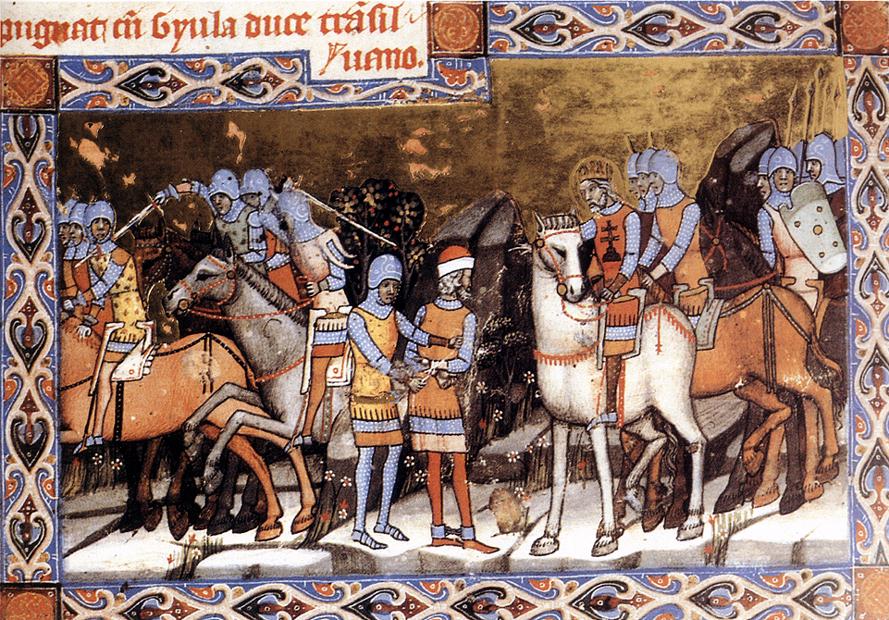 pugnat cū Gyula duce trāsil
uano.